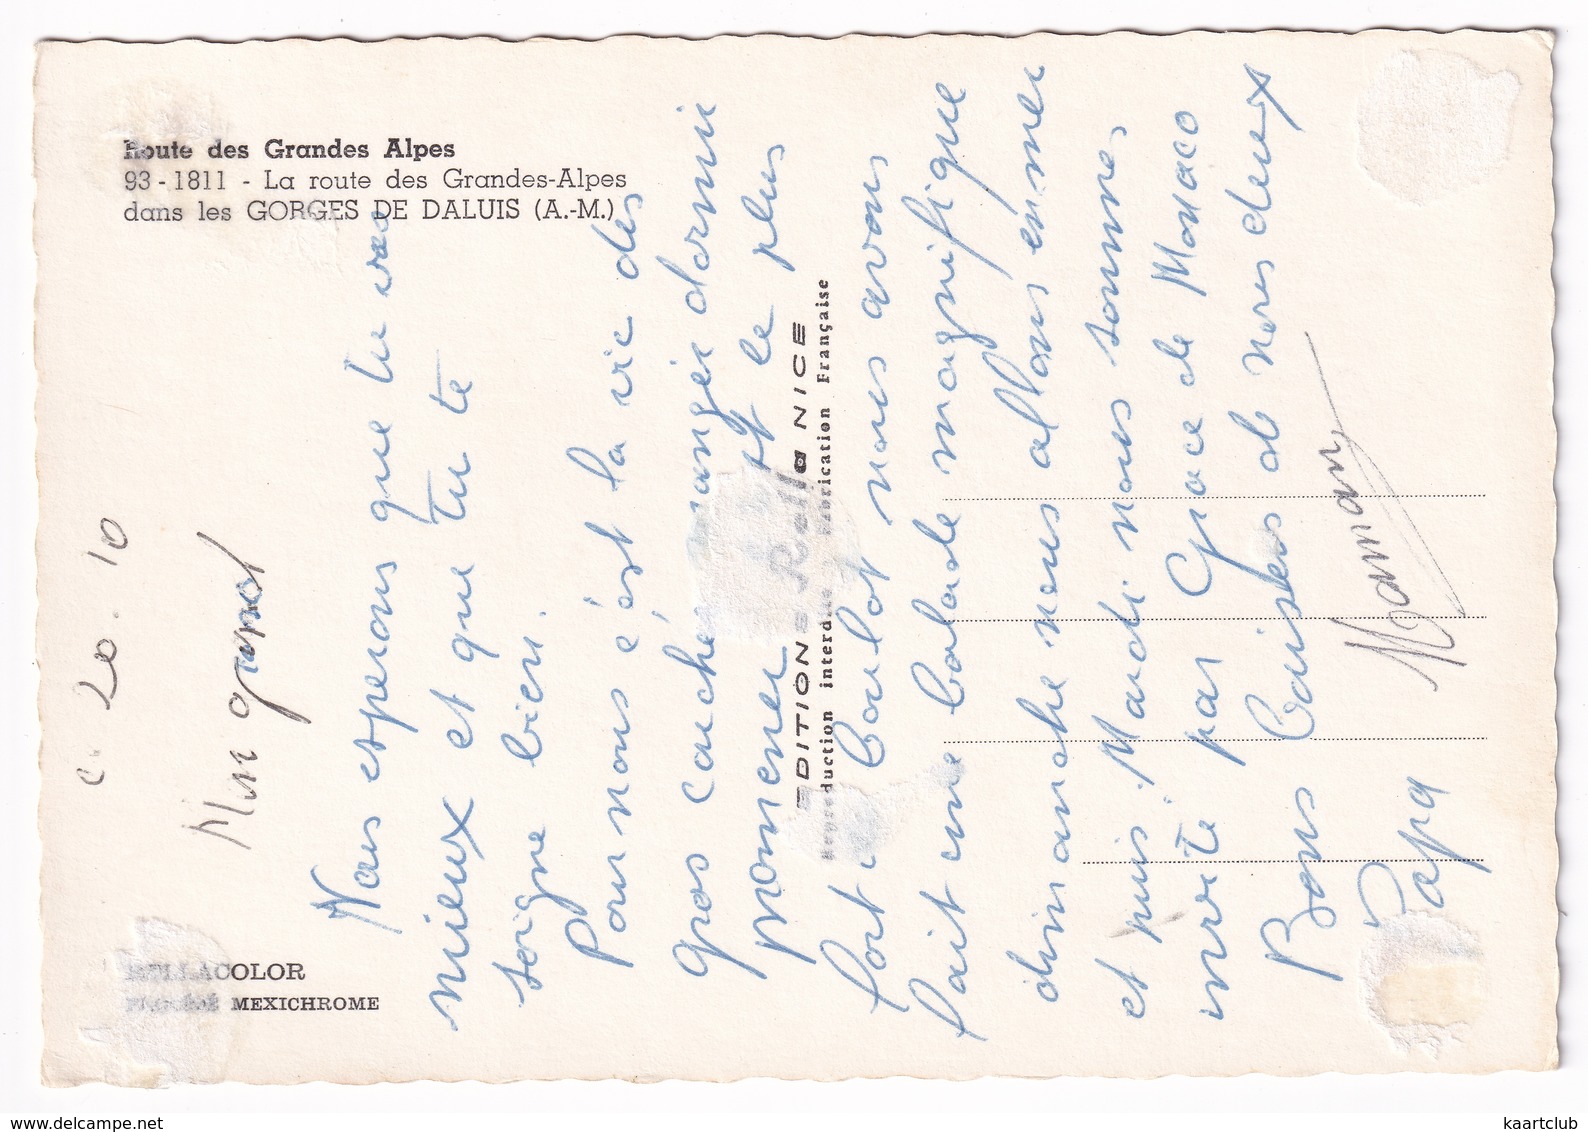 Route des Grandes Alpes
93-1811 - La route des Grandes-Alpes
dans les GORGES DE DALUIS (A.-M.)
BELLACOLOR
MEXICHROME
EDITIONS Rella NICE
Reproduction interdite Fabrication Française
20.10
Mon grand
Nous esperons que tu vas
mieux et que tu te
soigne bien.
Pour nous c'est la vie des
gros couché manger dormir
promener est le plus
fort boulot nous avons
fait une balade magnifique
dimanche nous allons en mer
et puis Mardi nous sommes
invité par Grace de Monaco
Bons baisers de nous deux
Papa Maman
kaartclub